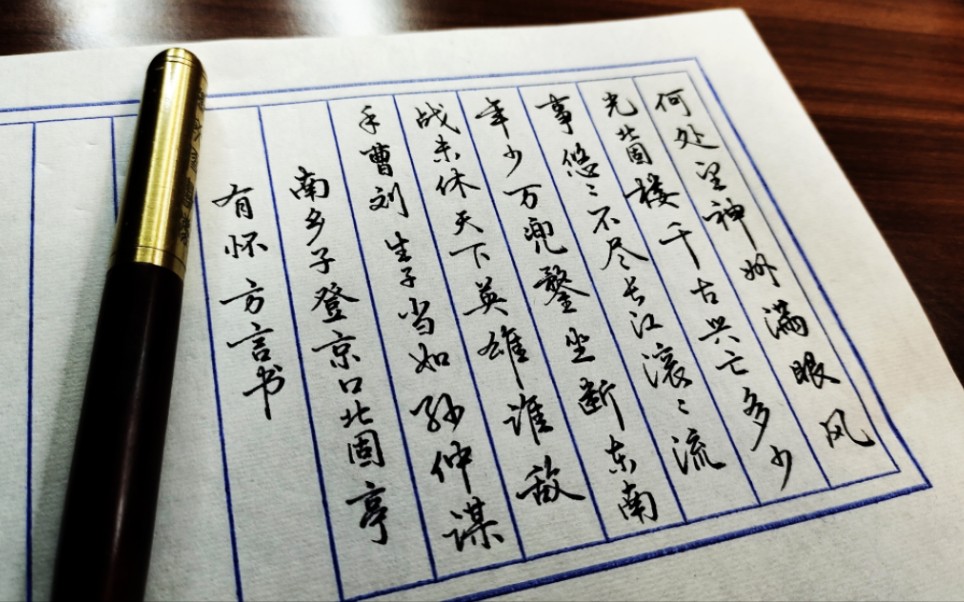 何处望神州满眼风
光北固楼千古兴亡多少
事悠〻不尽长江滚〻流
年少万兜鍪坐断东南
战未休天下英雄谁敌
手曹刘生子当如孙仲谋
南乡子登京口北固亭
有怀方言书